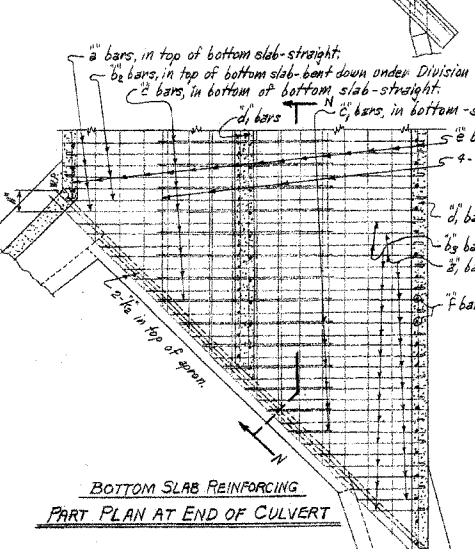 "a" bars, in top of bottom slab-straight.
"b2" bars, in top of bottom slab-bent down under Division
"c" bars, in bottom of bottom slab-straight.
"d1" bars
N
"c1" bars, in bottom-s
"e" b
4-
"d1" ba
"b3" ba
"a1" ba
"f" bar
2-"k2" in top of apron.
N
BOTTOM SLAB REINFORCING
PART PLAN AT END OF CULVERT